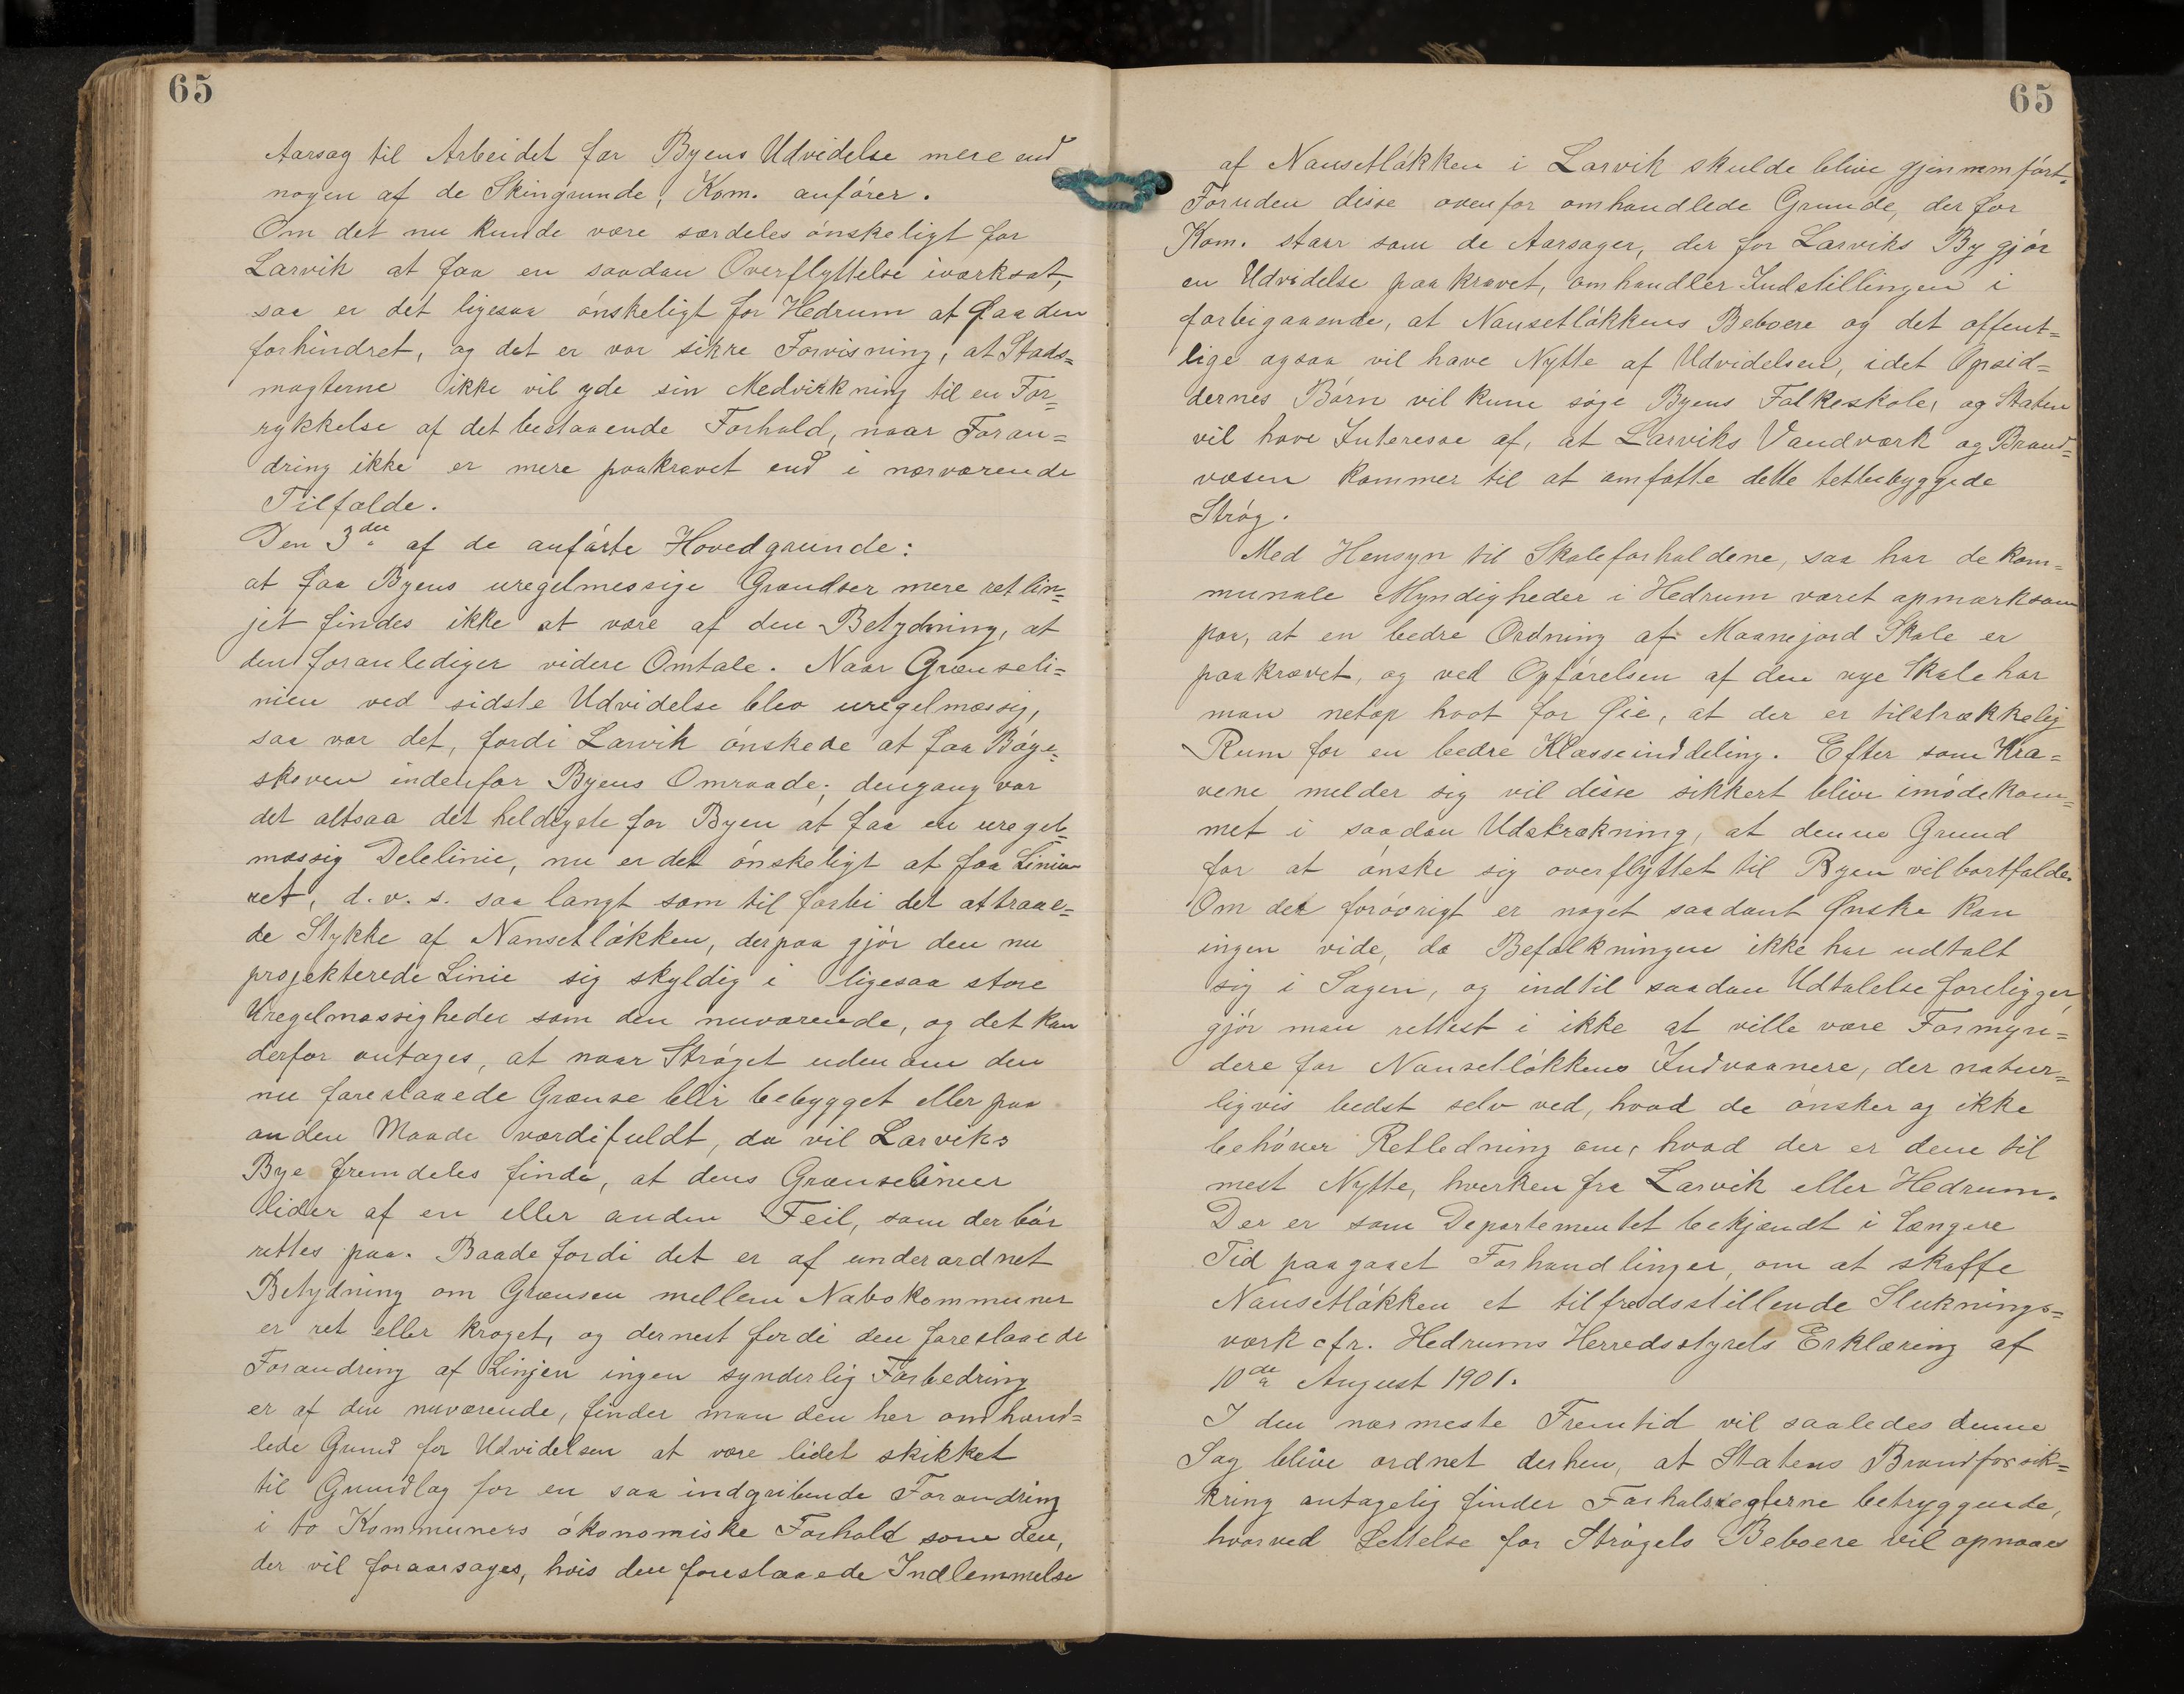 65
Aarsag til Arbeidet for Byens Udvidelse mere end
nogen af de Skingrunde, Kom. anfører.
Om det nu kunde være særdeles ønskeligt for
Larvik at faa en saadan Overflyttelse iværksat,
saa er det ligesaa ønskeligt for Hedrum at faa den
forhindret, og det er vor sikre Forvisning, at Stads=
magterne ikke vil yde sin Medvirkning til en For=
rykkelse af det bestaaende Forhold, naar Foran=
dring ikke er mere paakrævet end i nærværende
Tilfælde.
Den 3die af de anførte Hovedgrunde:
at faa Byens uregelmessige Grændser mere retlin=
jet findes ikke at være af den Betydning, at
den foranlediger videre Omtale. Naar Grænseli=
nien ved sidste Udvidelse blev uregelmæssig,
saa var det, fordi Larvik ønskede at faa Bøge=
skoven indenfor Byens Omraade; dengang var
det altsaa det heldigste for Byen at faa en uregel=
mæssig Delelinie, nu er det ønskeligt at faa Linien
ret, d.v.s. saa langt som til forbi det attraae=
de Stykke af Nansetløkken, derpaa gjør den nu
projekterede Linie sig skyldig i ligesaa store
Uregelmæssigheder som den nuværende, og det kan
derfor antages, at naar Strøget uden om den
nu foreslaaede Grænse blir bebygget eller paa
anden Maade værdifuldt, da vil Larviks
Bye fremdeles finde, at dens Grænselinier
lider af en eller anden Feil, som der bør
rettes paa. Baade fordi det er af underordnet
Betydning om Grænsen mellem Nabokommuner
er ret eller kroget, og dernest fordi den foreslaaede
Forandring af Linjen ingen synderlig Forbedring
er af den nuværende, finder man den her omhand=
lede Grund for Udvidelsen at være lidet skikket
til Grundlag for en saa indgribende Forandring
i to Kommuners økonomiske Forhold som den,
der vil foraarsages, hvis den foreslaaede Indlemmelse
65
af Nansetløkken i Larvik skulde blive gjennemført.
Foruden disse ovenfor omhandlede Grunde, der for
Kom. staar som de Aarsager, der for Larviks By gjør
en Udvidelse paakrævet, omhandler Indstillingen i
forbigaaende, at Nansetløkkens Beboere og det offent=
lige ogsaa vil have Nytte af Udvidelsen, idet Opsid=
dernes Børn vil kune søge Byens Folkeskole, og Staten
vil have Interesse af, at Larviks Vandværk og Brand=
væsen kommer til at omfatte dette tettbebyggede
Strøg.
Med Hensyn til Skoleforholdene, saa har de kom=
munale Myndigheder i Hedrum været opmærksom
paa, at en bedre Ordning af Maanejord Skole er
paakrævet, og ved Opførelsen af den nye Skole har
man netop havt for Øie, at der er tilstrækkelig
Rum for en bedre Klasseinddeling. Efter som Kra=
vene melder sig vil disse sikkert blive imødekom=
met i saadan Udstrækning, at denne Grund
for at ønske sig overflyttet til Byen vil bortfalde.
Om der forøvrigt er noget saadant Ønske kan
ingen vide, da Befolkningen ikke har udtalt
sig i Sagen, og indtil saadan Udtalelse foreligger,
gjør man rettest i ikke at ville være Formyn=
dere for Nansetløkkens Indvaanere, der natur=
ligvis bedst selv ved, hvad de ønsker og ikke
behøver Retledning om, hvad der er dem til
mest Nytte, hverken fra Larvik eller Hedrum.
Der er som Departementet bekjændt i længere
Tid paagaaet Forhandlinger, om at skaffe
Nansetløkken et tilfredsstillende Sluknings=
værk cfr. Hedrums Herredsstyrels Erklæring af
10de August 1901.
I den nærmeste Fremtid vil saaledes denne
Sag blive ordnet derhen, at Statens Brandforsik=
kring antagelig finder Forholdsreglerne betryggende,
hvorved Lettelse for Strøgets Beboere vil opnaaes